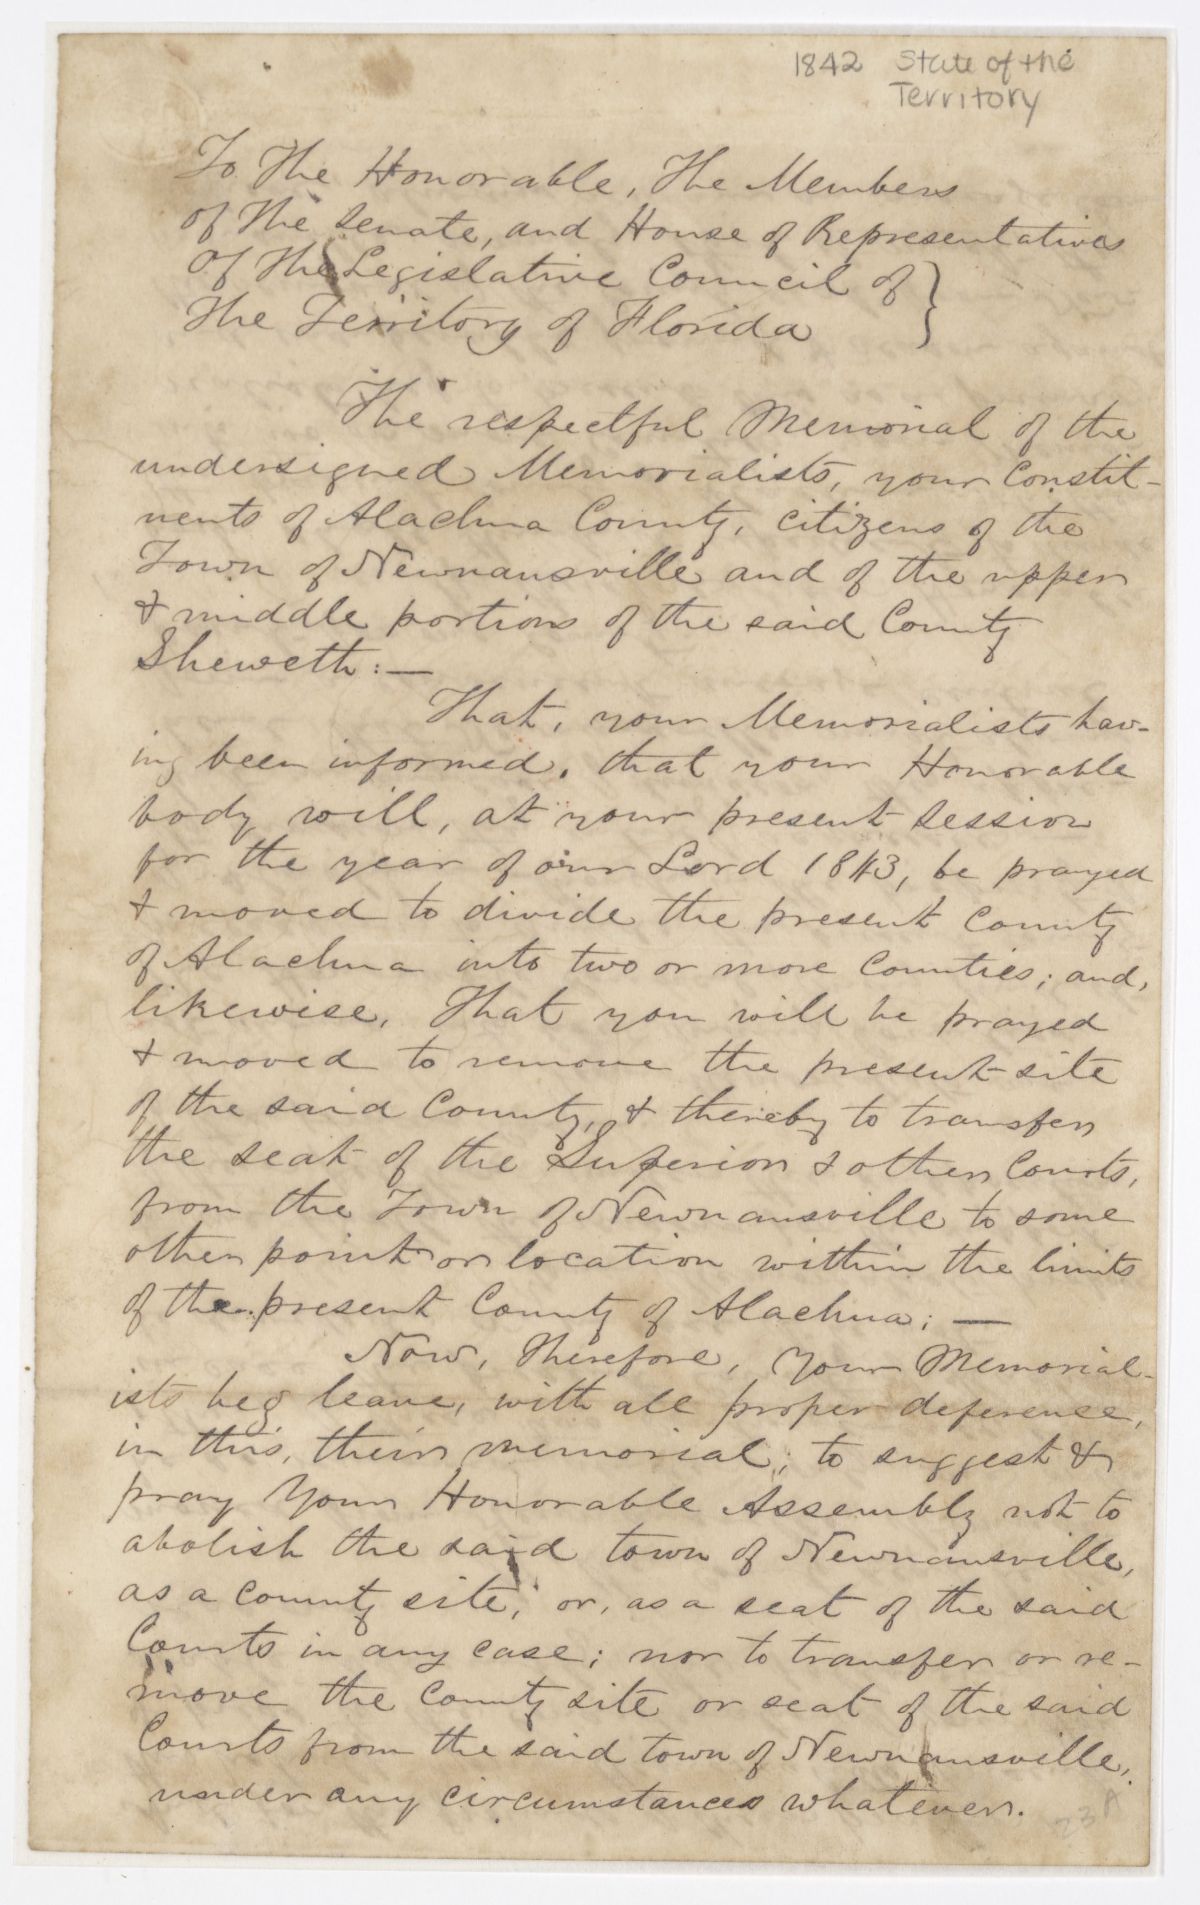 1842 State of the
Territory
To The Honorable, The Members
of The Senate, and House of Representatives
Of The Legislative Council of }
The Territory of Florida
The respectful Memorial of the
undersigned Memorialists, your Constit-
uents of Alachua County, citizens of the
Town of Newnansville and of the upper
& middle portions of the said County
Sheweth:—
That, your Memorialists hav-
ing been informed, that your Honorable
body will, at your present session
for the year of our Lord 1843, be prayed
& moved to divide the present County
of Alachua into two or more Counties; and,
likewise, That you will be prayed
& moved to remove the present site
of the said County, & thereby to transfer
the seat of the Superior & other Courts,
from the Town of Newnansville to some
other point or location within the limits
of the present County of Alachua; —
Now, Therefore, Your Memorial-
ists beg leave, with all proper deference,
in this, their memorial, to suggest &
pray Your Honorable Assembly not to
abolish the said town of Newnansville,
as a County site, or, as a seat of the said
Courts in any case; nor to transfer or re-
move the County site or seat of the said
Courts from the said town of Newnansville,
under any circumstances whatever.
23A